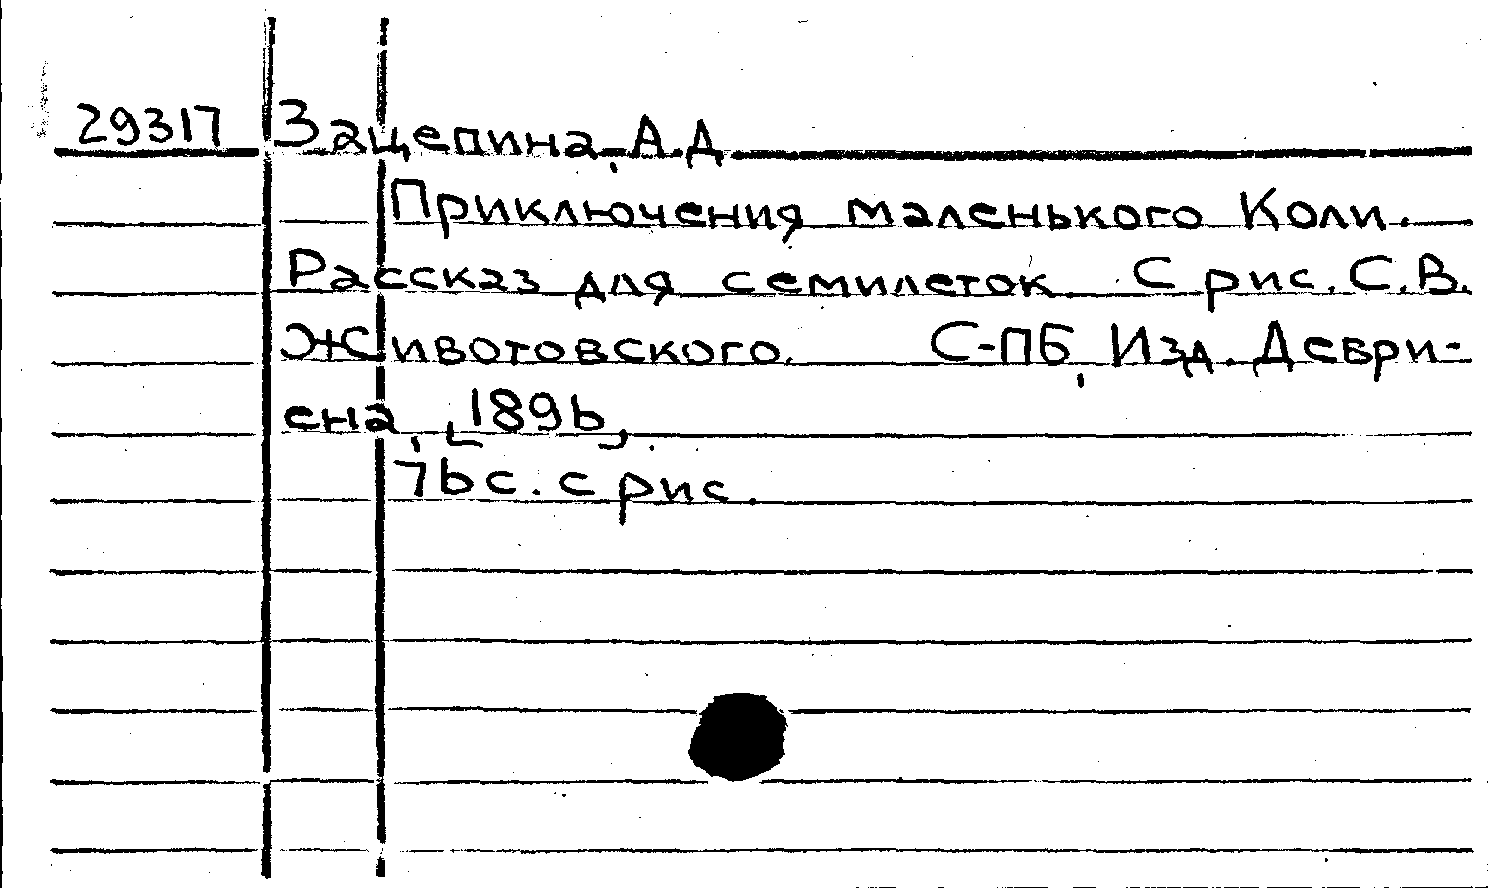 29317 Зацепина, А.Д
Приключения маленького Коли.
Рассказ для семилеток. С рис. С.В.
Животовского. С-ПБ, Изд. Деври-
ена, [1896].
76 с. с рис.